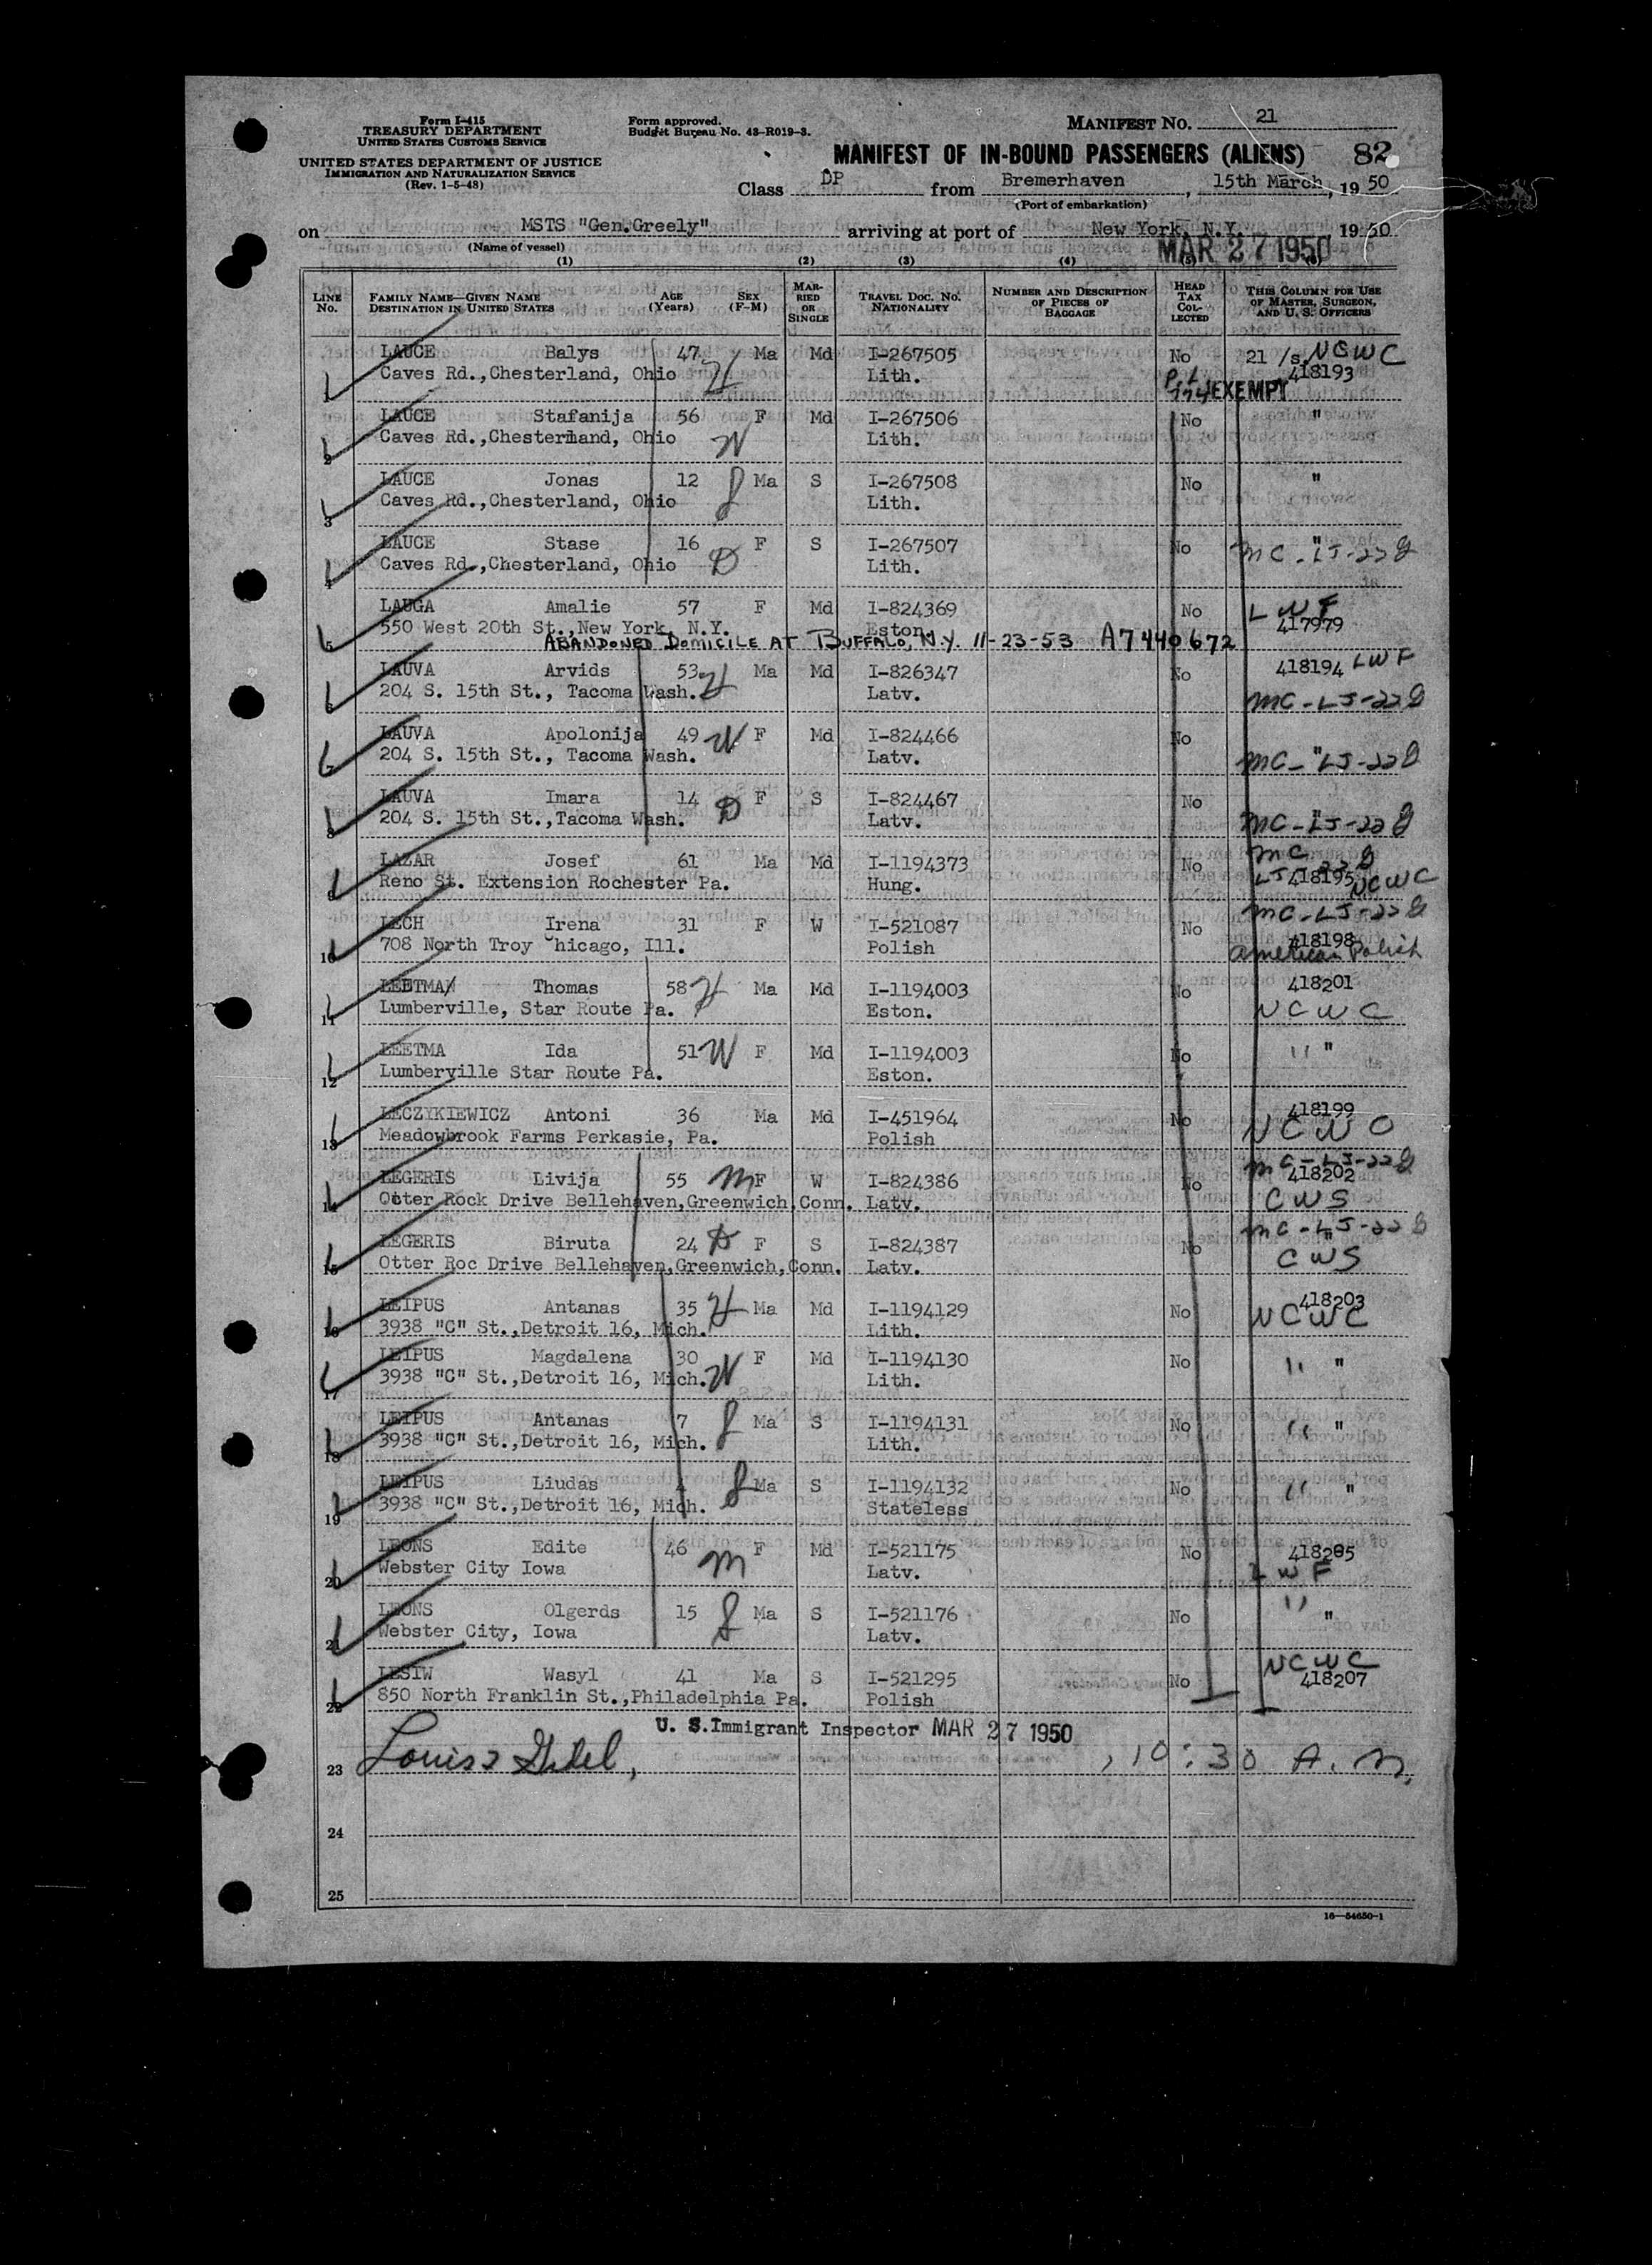 Form I-415
TREASURY DEPARTMENT
UNITED STATES CUSTOMS SERVICE
UNITED STATES DEPARTMENT OF JUSTICE
IMMIGRATION AND NATURALIZATION SERVICE
(Rev. 1-5-48)
Form approved.
Budget Bureau No. 43-R019-3.
MANIFEST NO. 21
MANIFEST OF IN-BOUND PASSENGERS (ALIENS) 82
Class DP from Bremerhaven, 15th March, 1950
(Port of embarkation)
on MSTS "Gen.Greely" arriving at port of New York, N.Y. 1950
(Name of vessel) MAR 27 1950
(1) (2) (3) (4) (5) (6)
LINE No. FAMILY NAME—GIVEN NAME DESTINATION IN UNITED STATES AGE (Years) SEX (F-M) MARRIED OR SINGLE TRAVEL DOC. NO. NATIONALITY NUMBER AND DESCRIPTION OF PIECES OF BAGGAGE HEAD TAX COLLECTED THIS COLUMN FOR USE OF MASTER, SURGEON, AND U. S. OFFICERS
1 LAUCE Balys 47 H Ma Md I-267505 No 21 /s NCWC
Caves Rd.,Chesterland, Ohio Lith. P.L. 774 EXEMPT 418193
2 LAUCE Stafanija 56 W F Md I-267506 No "
Caves Rd.,Chesterland, Ohio Lith.
3 LAUCE Jonas 12 S Ma S I-267508 No "
Caves Rd.,Chesterland, Ohio Lith.
4 LAUCE Stase 16 D F S I-267507 No "
Caves Rd.,Chesterland, Ohio Lith. MC-LJ-22
5 LAUGA Amalie 57 F Md I-824369 No LWF
550 West 20th St.,New York, N.Y. Eston. 417979
ABANDONED DOMICILE AT BUFFALO, N.Y. 11-23-53 A7440672
6 LAUVA Arvids 53 H Ma Md I-826347 No 418194 LWF
204 S. 15th St., Tacoma Wash. Latv. MC-LJ-22
7 LAUVA Apolonija 49 W F Md I-824466 No "
204 S. 15th St., Tacoma Wash. Latv. MC-LJ-22
8 LAUVA Imara 14 D F S I-824467 No "
204 S. 15th St.,Tacoma Wash. Latv. MC-LJ-22
9 LAZAR Josef 61 Ma Md I-1194373 No MC LJ-22
Reno St. Extension Rochester Pa. Hung. 418195 NCWC
10 LECH Irena 31 F W I-521087 No MC-LJ-22
708 North Troy Chicago, Ill. Polish 418198
American Polish
11 LEETMA Thomas 58 H Ma Md I-1194003 No 418201
Lumberville, Star Route Pa. Eston. NCWC
12 LEETMA Ida 51 W F Md I-1194003 No " "
Lumberville Star Route Pa. Eston.
13 LECZYKIEWICZ Antoni 36 Ma Md I-451964 No 418199
Meadowbrook Farms Perkasie, Pa. Polish NCWC
14 LEGERIS Livija 55 M F W I-824386 No MC-LJ-22 418202
Otter Rock Drive Bellehaven,Greenwich,Conn. Latv. CWS
15 LEGERIS Biruta 24 D F S I-824387 No MC-LJ-22 "
Otter Roc Drive Bellehaven,Greenwich,Conn. Latv. CWS
16 LEIPUS Antanas 35 H Ma Md I-1194129 No 418203
3938 "C" St.,Detroit 16, Mich. Lith. NCWC
17 LEIPUS Magdalena 30 W F Md I-1194130 No " "
3938 "C" St.,Detroit 16, Mich. Lith.
18 LEIPUS Antanas 7 S Ma S I-1194131 No " "
3938 "C" St.,Detroit 16, Mich. Lith.
19 LEIPUS Liudas 4 S Ma S I-1194132 No " "
3938 "C" St.,Detroit 16, Mich. Stateless
20 LEONS Edite 46 M F Md I-521175 No 418205
Webster City Iowa Latv. LWF
21 LEONS Olgerds 15 S Ma S I-521176 No " "
Webster City, Iowa Latv.
22 LESIW Wasyl 41 Ma S I-521295 No NCWC
850 North Franklin St.,Philadelphia Pa. Polish 418207
U. S. Immigrant Inspector MAR 27 1950
23 , 10:30 A.M.
24
25
16—54650-1